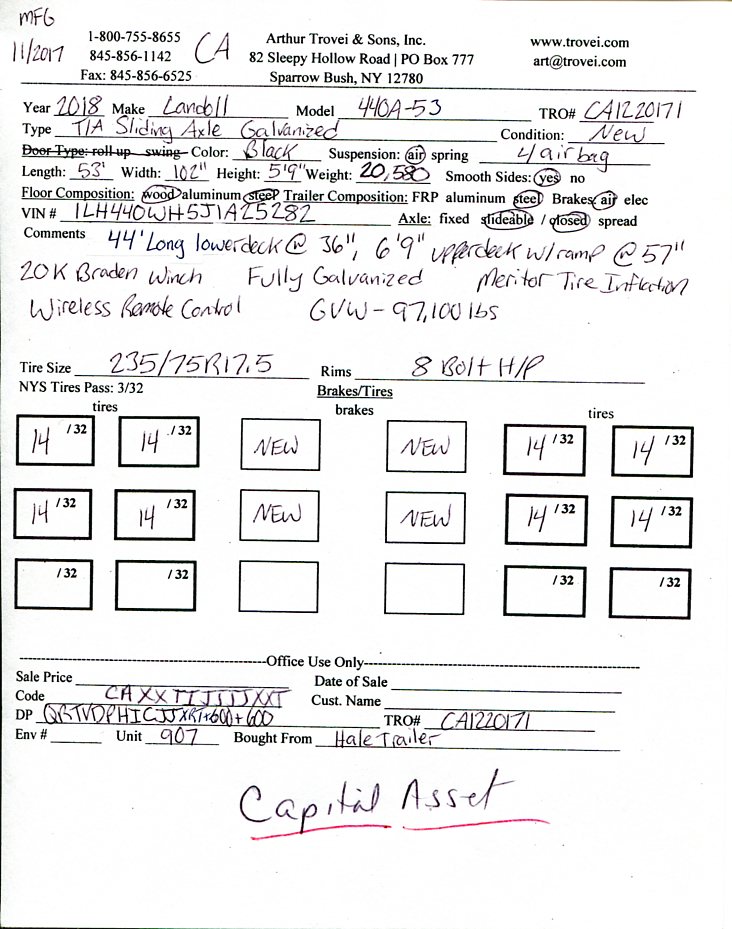 MFG
11/2017
1-800-755-8655
845-856-1142
Fax: 845-856-6525
CA
Arthur Trovei & Sons, Inc.
82 Sleepy Hollow Road | PO Box 777
Sparrow Bush, NY 12780
www.trovei.com
art@trovei.com
Year 2018 Make Landoll Model 440A-53 TRO# CA1220171
Type T/A Sliding Axle Galvanized Condition: New
Door Type: roll up swing Color: Black Suspension: air spring 4 air bag
Length: 53' Width: 102" Height: 5'9" Weight: 20,580 Smooth Sides: yes no
Floor Composition: wood aluminum steel Trailer Composition: FRP aluminum steel Brakes air elec
VIN # 1LH440WH5J1A25282 Axle: fixed slideable / closed spread
Comments 44' Long lowerdeck @ 36", 6'9" upperdeck w/ramp @ 57"
20K Braden Winch Fully Galvanized Meritor Tire Inflation
Wireless Remote Control GVW - 97,100 lbs
Tire Size 235/75R17.5 Rims 8 Bolt H/P
NYS Tires Pass: 3/32 Brakes/Tires
tires brakes tires
14 /32 14 /32 NEW NEW 14 /32 14 /32
14 /32 14 /32 NEW NEW 14 /32 14 /32
/32 /32 /32 /32
Office Use Only
Sale Price Date of Sale
Code CAXXTTJJJJXXT Cust. Name
DP TRO# CA1220171
Env # Unit 907 Bought From Hale Trailer
Capital Asset